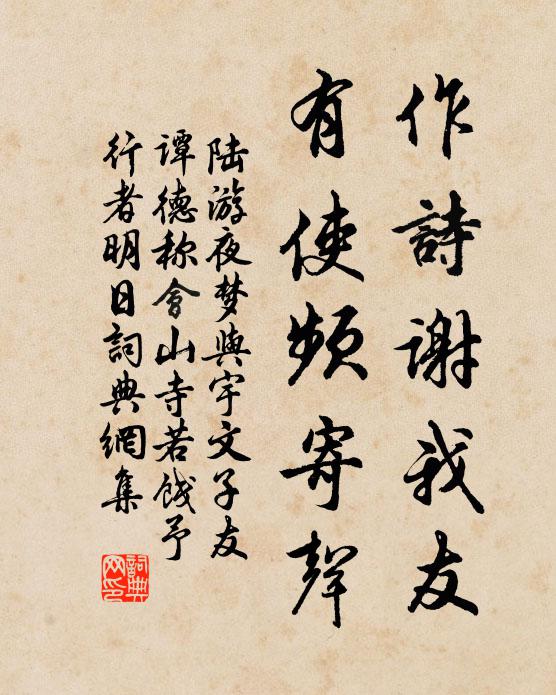 作詩謝我友
有使頻寄聲
陆游夜梦與宇文子友
谭德称會山寺若餞予
行者明日詞典網集
詞典网印